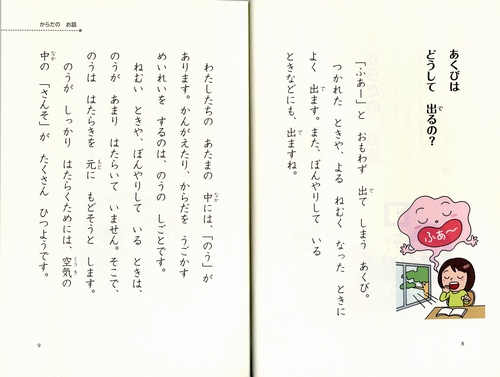 あくびは
どうして 出るの？
で
「ふあー」と おもわず 出て しまう あくび。
で
つかれた ときや、よる ねむく なった ときに
よく 出ます。また、ぼんやりして いる
で
ときなどにも、出ますね。
で
ふぁ〜
8
からだの お話
わたしたちの あたまの 中には、「のう」が
なか
あります。かんがえたり、からだを うごかす
めいれいを するのは、のうの しごとです。
ねむい ときや、ぼんやりして いる ときは、
のうが あまり はたらいて いません。そこで、
のうは はたらきを 元に もどそうと します。
もと
のうが しっかり はたらくためには、空気の
くうき
中の 「さんそ」が たくさん ひつようです。
なか
9